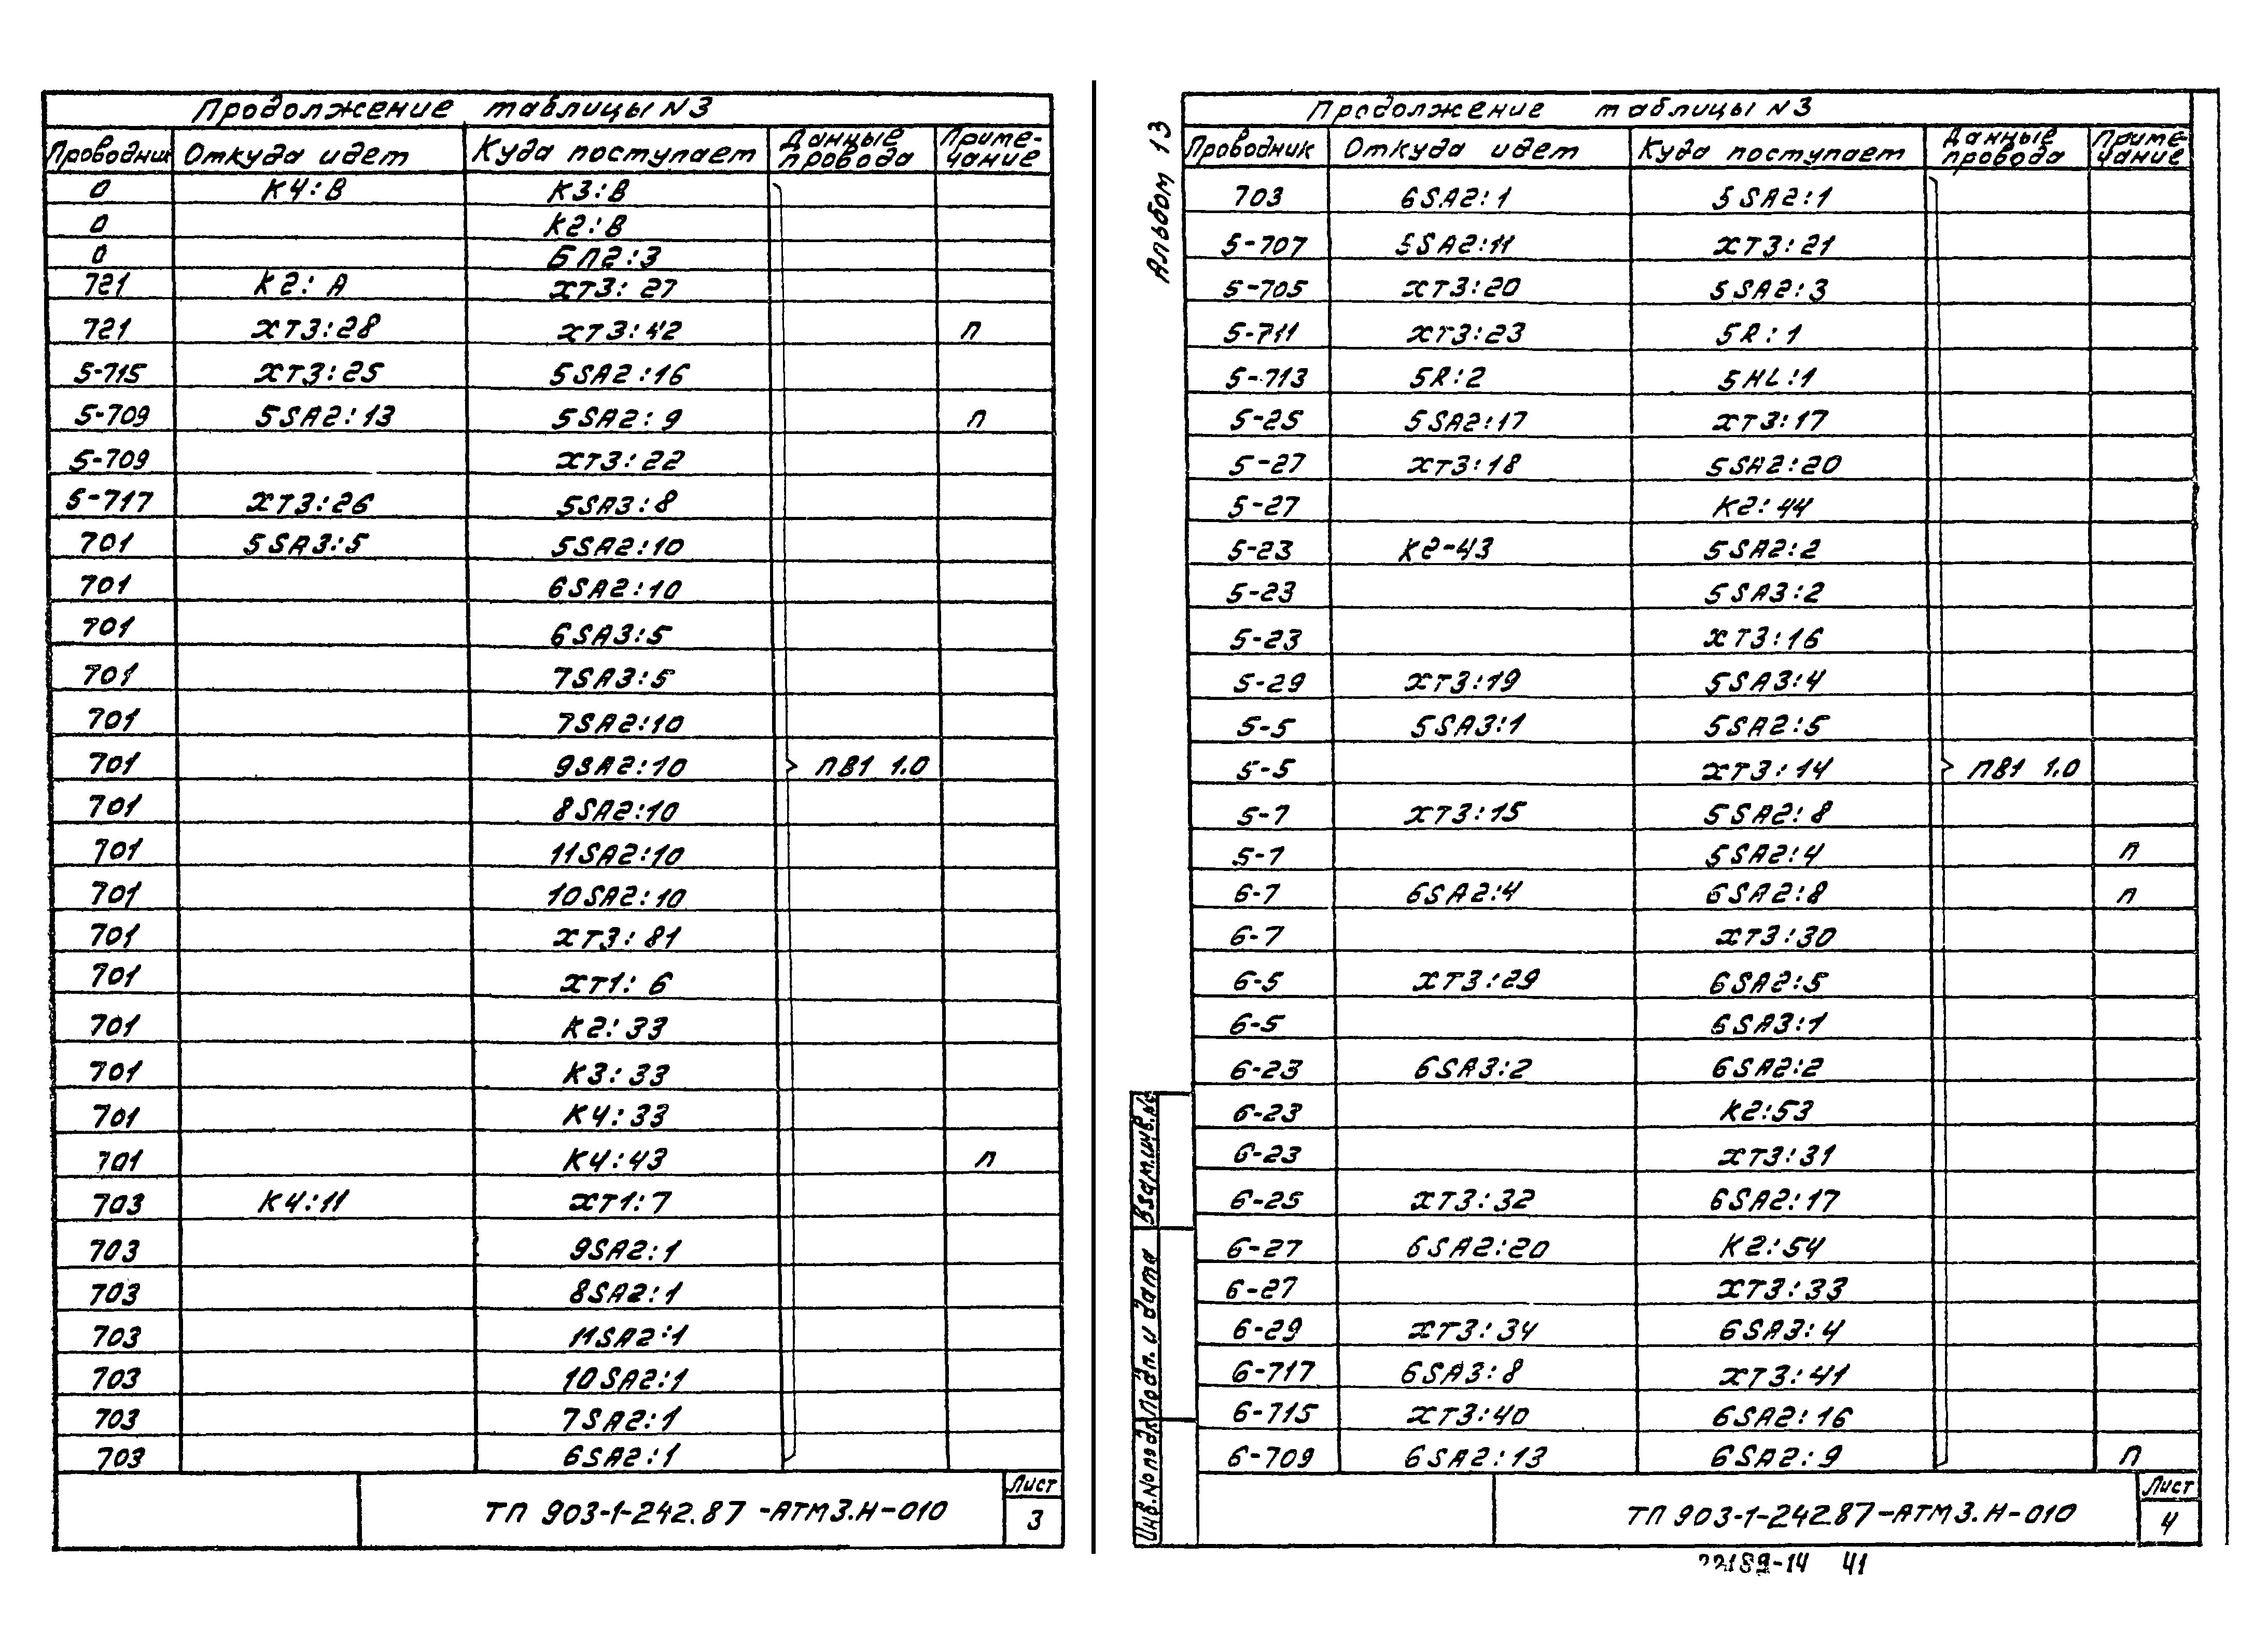 Продолжение таблицы N3
Проводник Откуда идет Куда поступает Данные провода Примечание
0 К4:В К3:В
0 К2:В
0 БП2:3
721 К2:А ХТ3:27
721 ХТ3:28 ХТ3:42 П
5-715 ХТ3:25 5SA2:16
5-709 5SA2:13 5SA2:9 П
5-709 ХТ3:22
5-717 ХТ3:26 5SA3:8
701 5SA3:5 5SA2:10
701 6SA2:10
701 6SA3:5
701 7SA3:5
701 7SA2:10
701 9SA2:10 ПВ1 1.0
701 8SA2:10
701 11SA2:10
701 10SA2:10
701 ХТ3:81
701 ХТ1:6
701 К2:33
701 К3:33
701 К4:33
701 К4:43 П
703 К4:11 ХТ1:7
703 9SA2:1
703 8SA2:1
703 11SA2:1
703 10SA2:1
703 7SA2:1
703 6SA2:1
ТП 903-1-242.87-АТМ3.Н-010
Лист
3
Альбом 13
Продолжение таблицы N3
Проводник Откуда идет Куда поступает Данные провода Примечание
703 6SA2:1 5SA2:1
5-707 5SA2:11 ХТ3:21
5-705 ХТ3:20 5SA2:3
5-711 ХТ3:23 5R:1
5-713 5R:2 5HL:1
5-25 5SA2:17 ХТ3:17
5-27 ХТ3:18 5SA2:20
5-27 К2:44
5-23 К2-43 5SA2:2
5-23 5SA3:2
5-23 ХТ3:16
5-29 ХТ3:19 5SA3:4
5-5 5SA3:1 5SA2:5
5-5 ХТ3:14 ПВ1 1.0
5-7 ХТ3:15 5SA2:8
5-7 5SA2:4 П
6-7 6SA2:4 6SA2:8 П
6-7 ХТ3:30
6-5 ХТ3:29 6SA2:5
6-5 6SA3:1
6-23 6SA3:2 6SA2:2
6-23 К2:53
6-23 ХТ3:31
6-25 ХТ3:32 6SA2:17
6-27 6SA2:20 К2:54
6-27 ХТ3:33
6-29 ХТ3:34 6SA3:4
6-717 6SA3:8 ХТ3:41
6-715 ХТ3:40 6SA2:16
6-709 6SA2:13 6SA2:9 П
Взам.инв.No
Подп. и дата
Инв.No подл.
ТП 903-1-242.87-АТМ3.Н-010
Лист
4
22189-14 41